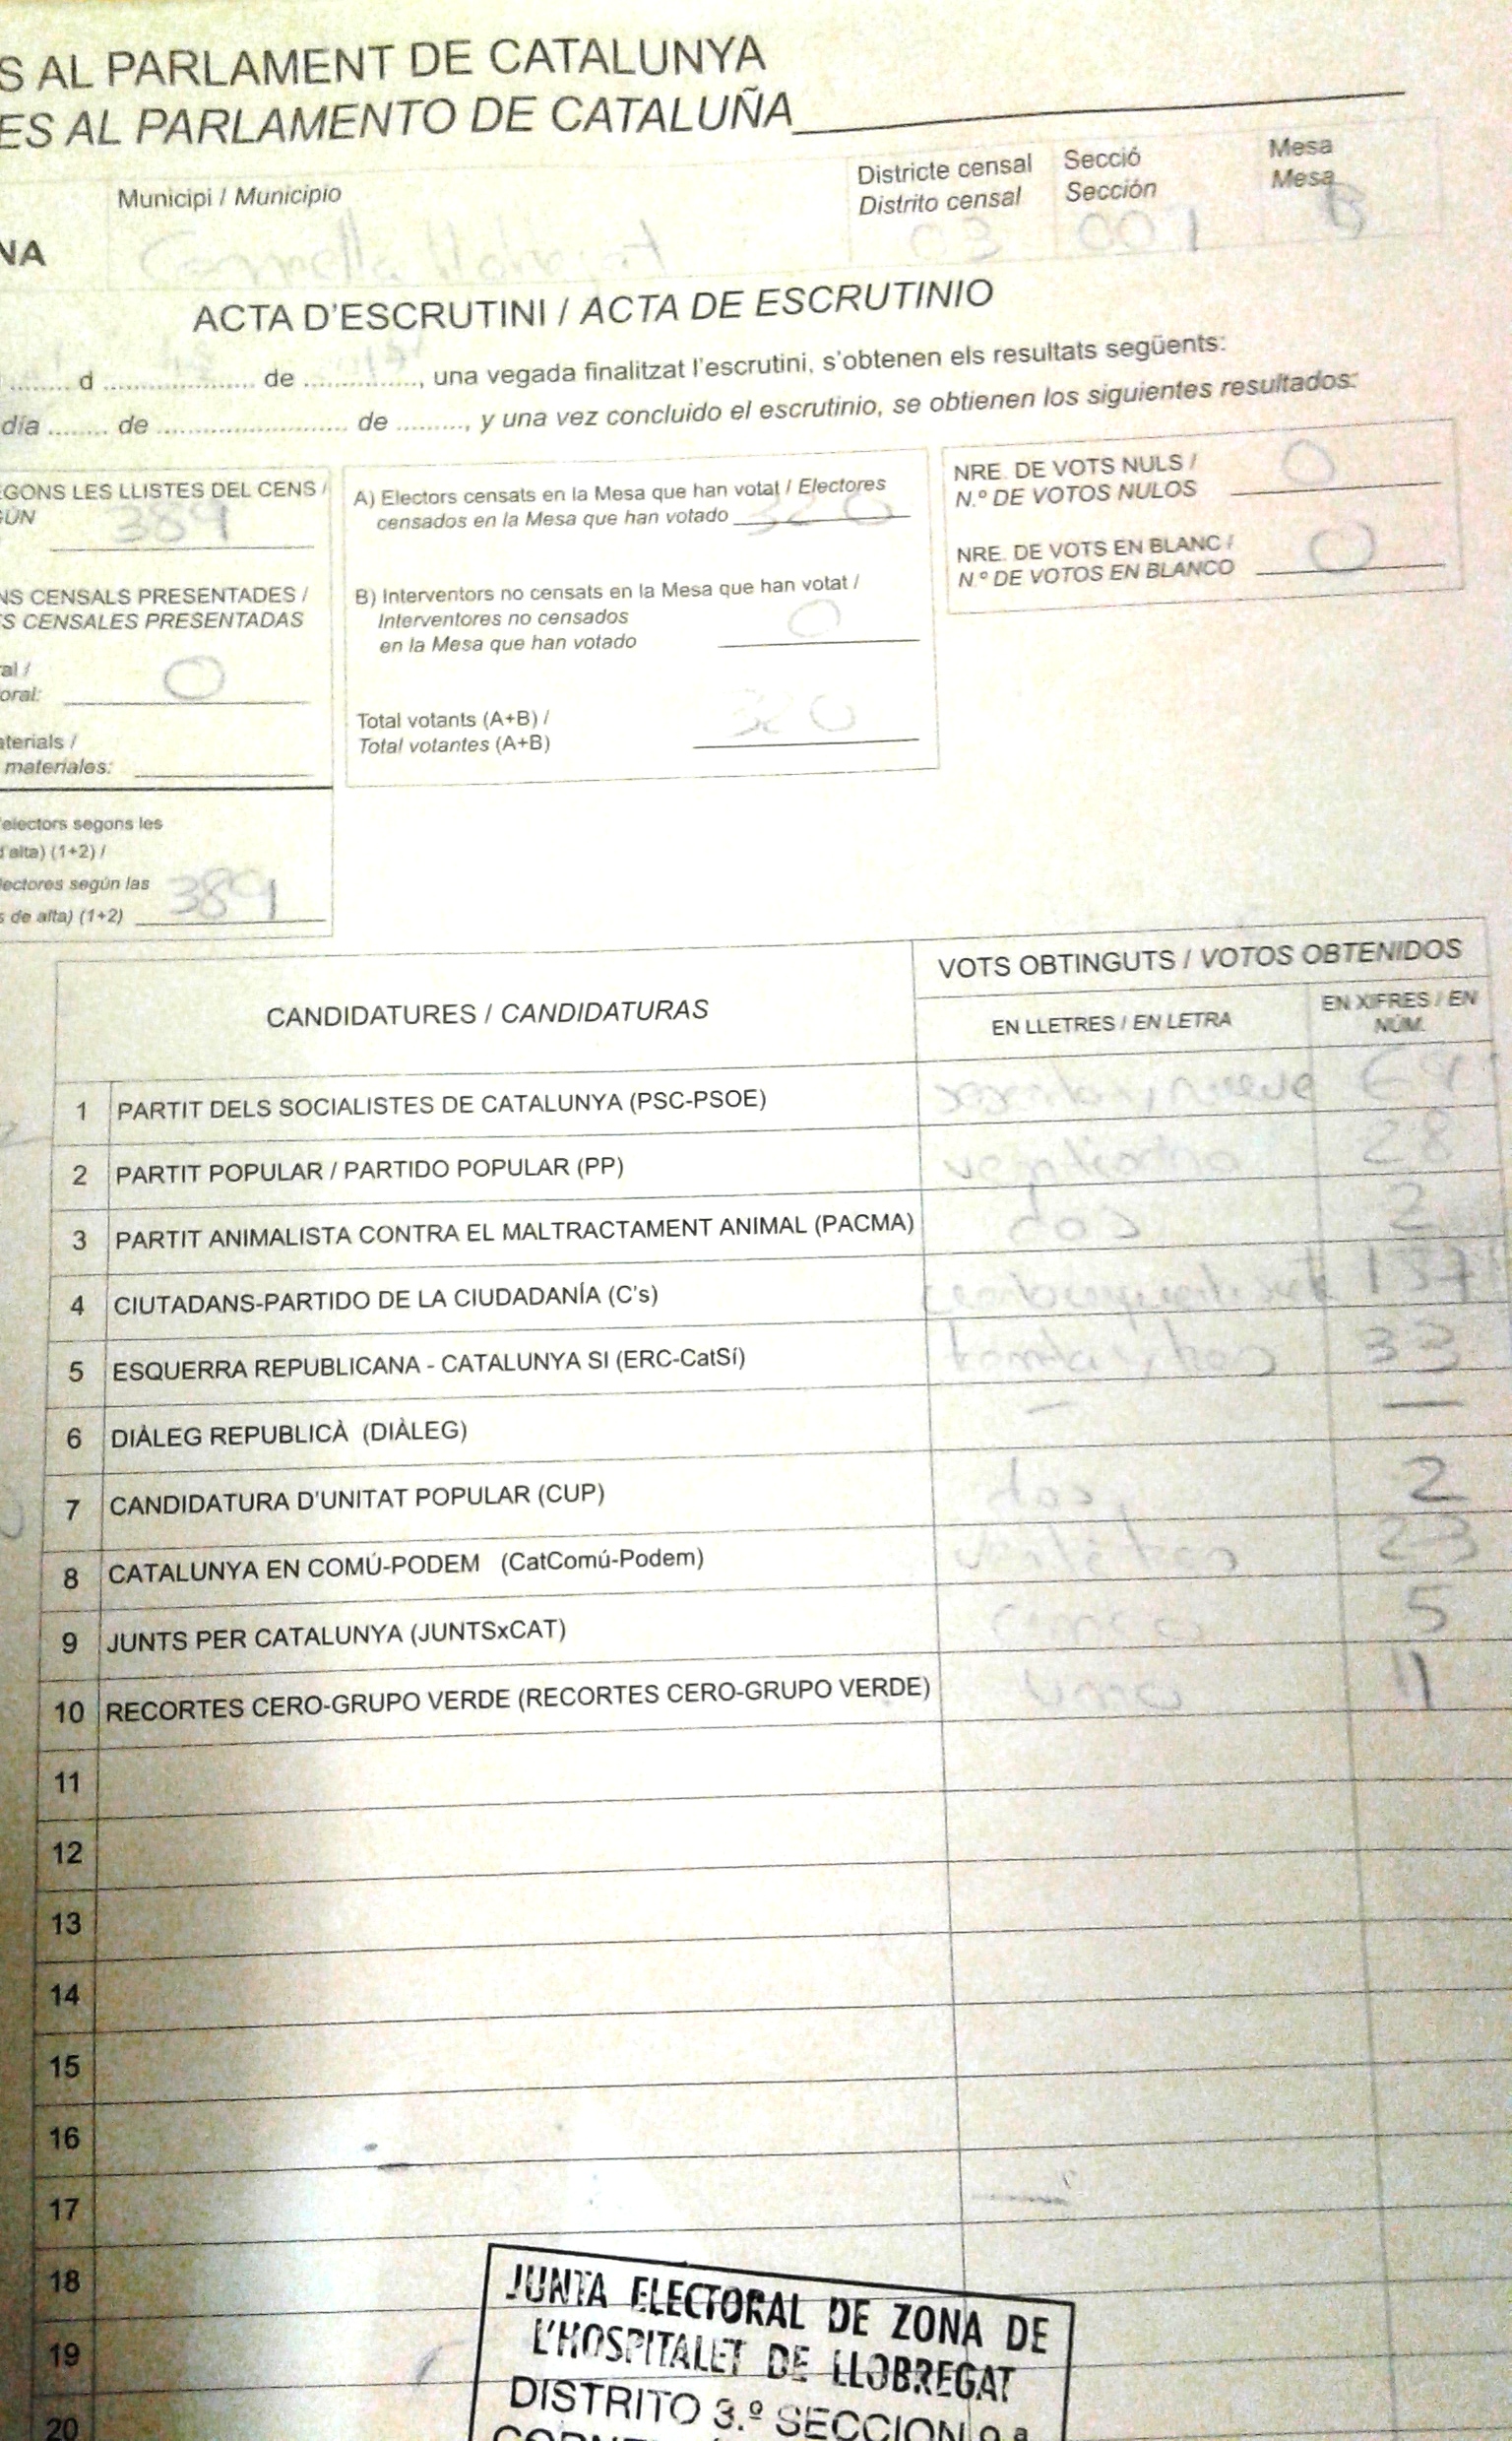 S AL PARLAMENT DE CATALUNYA
ES AL PARLAMENTO DE CATALUÑA
Municipi / Municipio
Districte censal
Distrito censal
Secció
Sección
Mesa
Mesa
NA
03
001
B
ACTA D'ESCRUTINI / ACTA DE ESCRUTINIO
........ d ...................... de ................, una vegada finalitzat l'escrutini, s'obtenen els resultats següents:
día ........ de ........................... de .........., y una vez concluido el escrutinio, se obtienen los siguientes resultados:
EGONS LES LLISTES DEL CENS /
GÚN
389
NS CENSALS PRESENTADES /
S CENSALES PRESENTADAS
al /
oral:
0
aterials /
materiales:
electors segons les
d'alta) (1+2) /
lectores según las
s de alta) (1+2)
389
A) Electors censats en la Mesa que han votat / Electores
censados en la Mesa que han votado
320
B) Interventors no censats en la Mesa que han votat /
Interventores no censados
en la Mesa que han votado
0
Total votants (A+B) /
Total votantes (A+B)
320
NRE. DE VOTS NULS /
N.º DE VOTOS NULOS
0
NRE. DE VOTS EN BLANC /
N.º DE VOTOS EN BLANCO
0
CANDIDATURES / CANDIDATURAS
VOTS OBTINGUTS / VOTOS OBTENIDOS
EN LLETRES / EN LETRA
EN XIFRES / EN
NÚM.
1 PARTIT DELS SOCIALISTES DE CATALUNYA (PSC-PSOE) nueve 69
2 PARTIT POPULAR / PARTIDO POPULAR (PP) veintiocho 28
3 PARTIT ANIMALISTA CONTRA EL MALTRACTAMENT ANIMAL (PACMA) dos 2
4 CIUTADANS-PARTIDO DE LA CIUDADANÍA (C's) 157
5 ESQUERRA REPUBLICANA - CATALUNYA SI (ERC-CatSí) 33
6 DIÀLEG REPUBLICÀ (DIÀLEG) — —
7 CANDIDATURA D'UNITAT POPULAR (CUP) dos 2
8 CATALUNYA EN COMÚ-PODEM (CatComú-Podem) 23
9 JUNTS PER CATALUNYA (JUNTSxCAT) cinco 5
10 RECORTES CERO-GRUPO VERDE (RECORTES CERO-GRUPO VERDE) uno 1
11
12
13
14
15
16
17
18
19
20
JUNTA ELECTORAL DE ZONA DE
L'HOSPITALET DE LLOBREGAT
DISTRITO 3.º SECCION